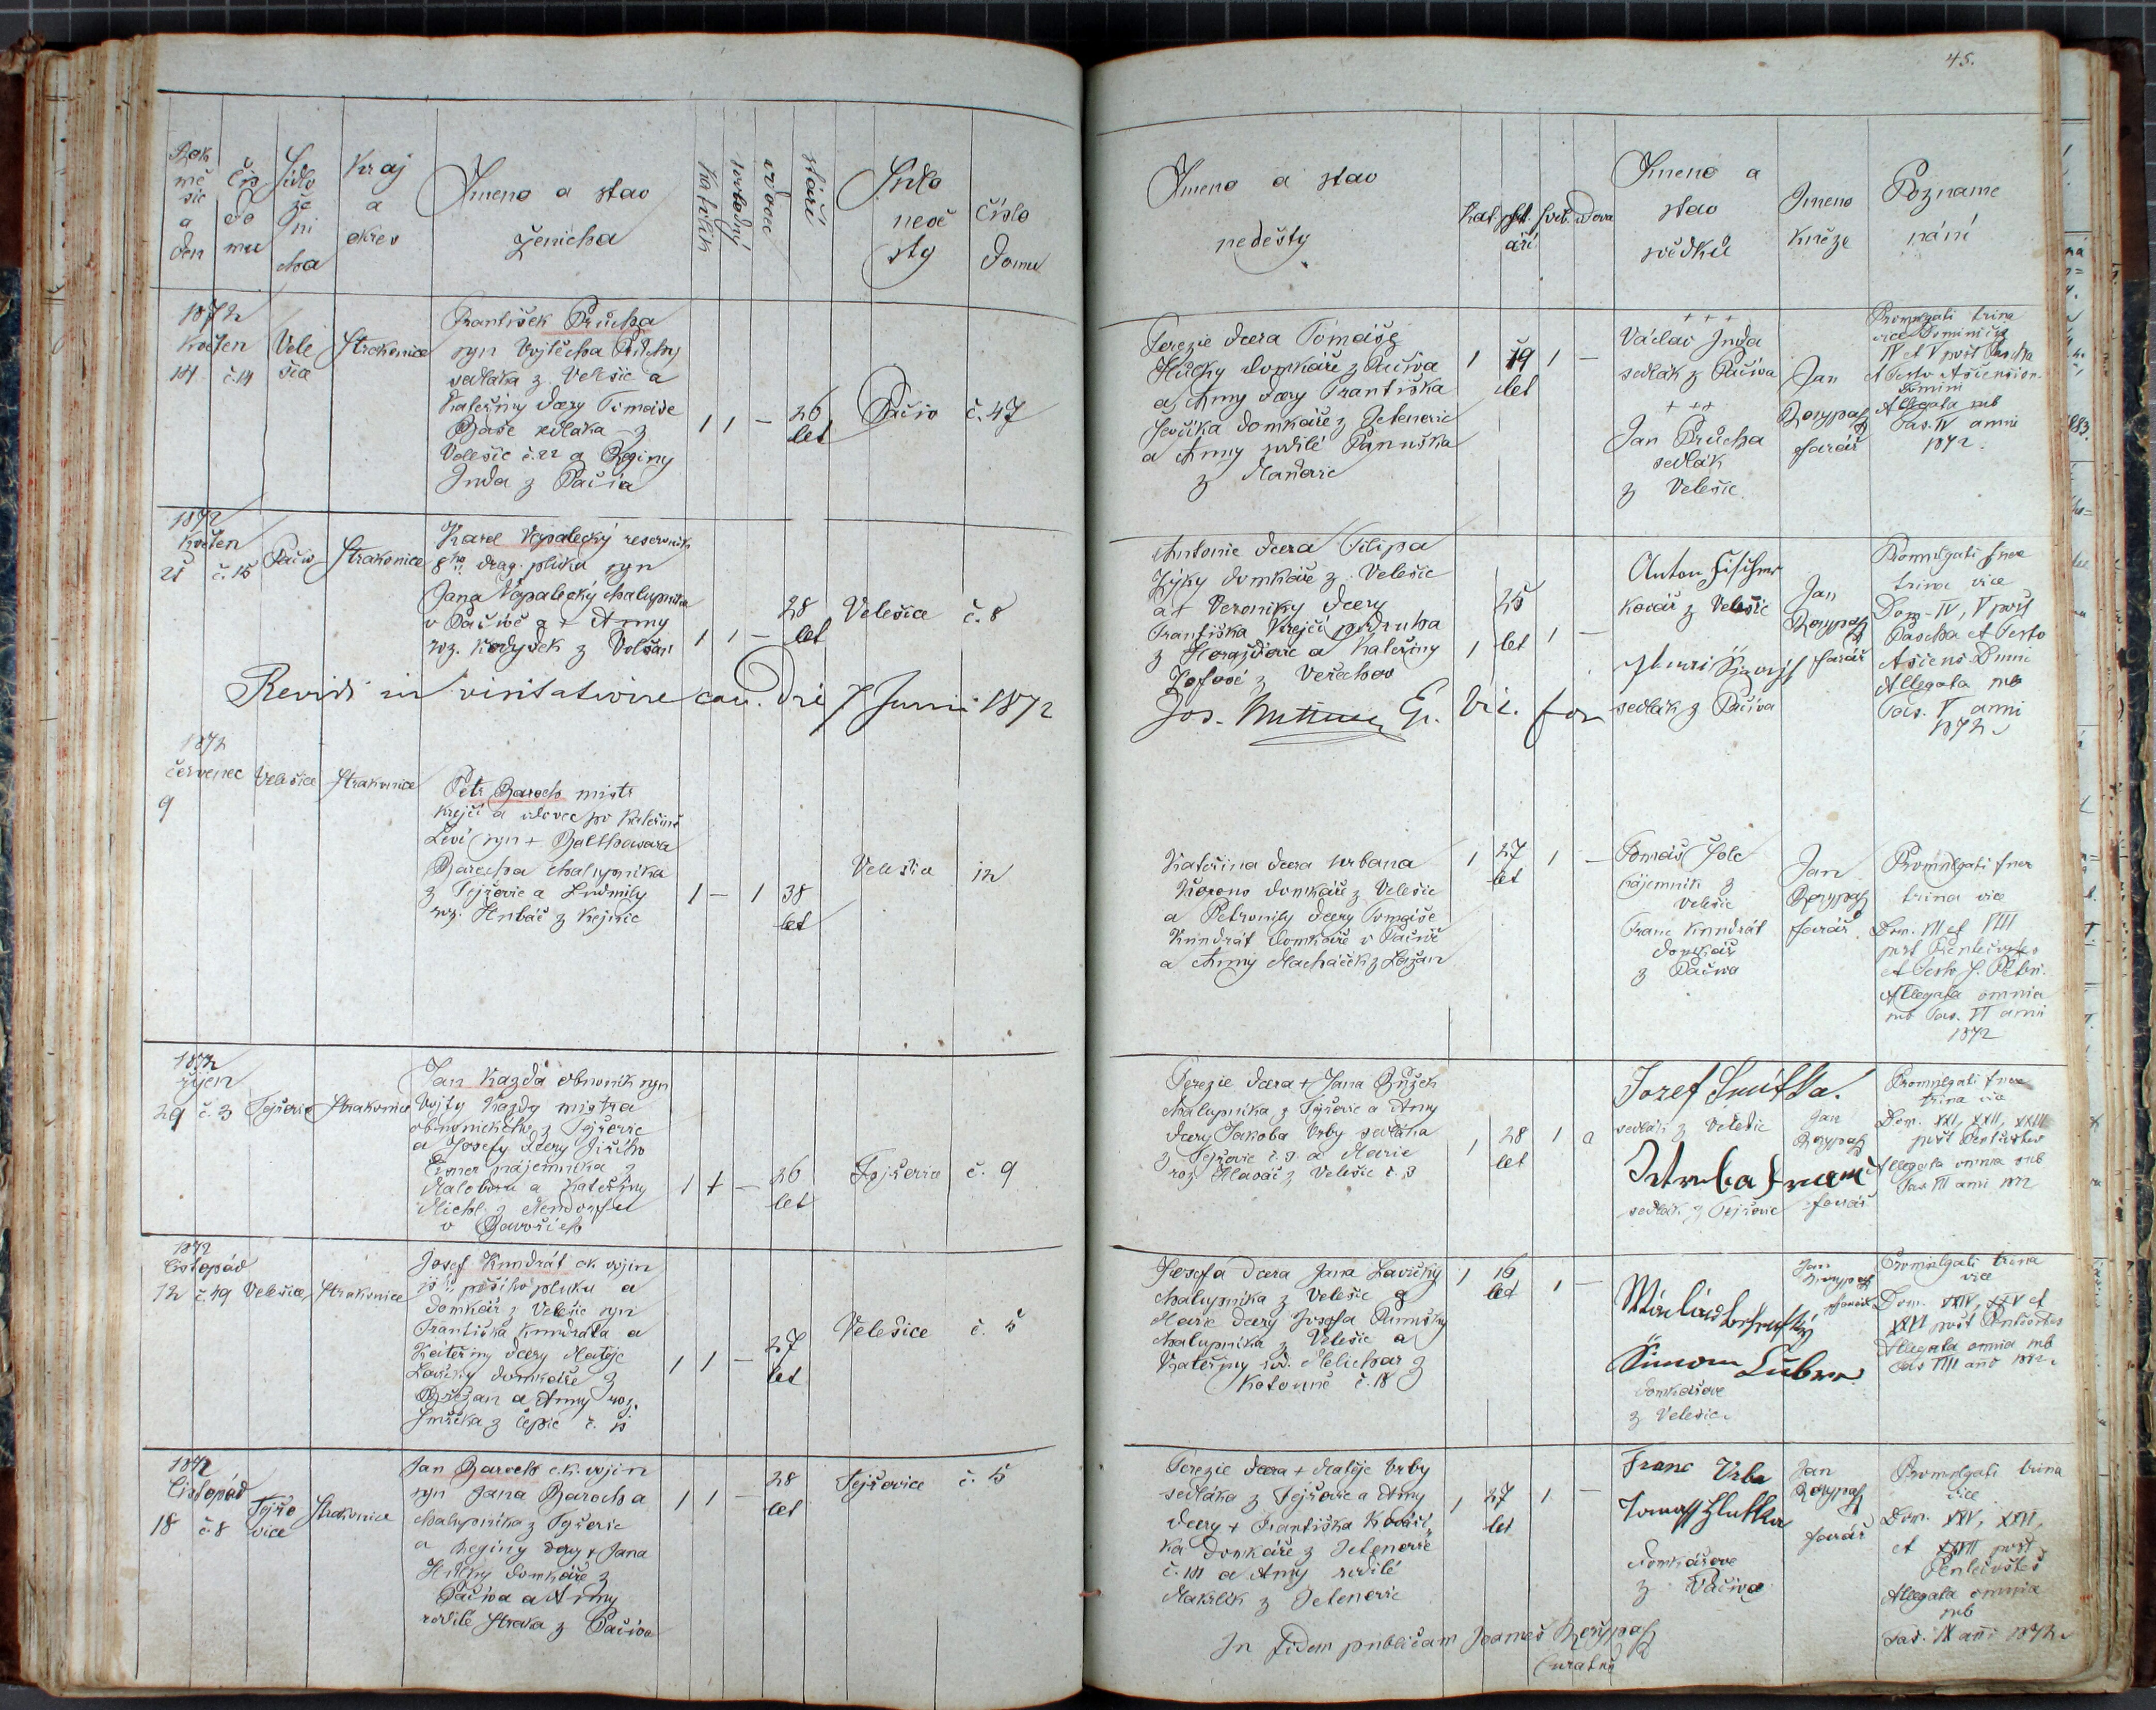 45.
Rok
mě
síc
a
den
Čís
do
mu
Sídlo
že
ni
cha
Kraj
a
okres
Jmeno a stav
ženicha
katolík
svobodný
vdovec
stáří
Sídlo
nevě
sty
Číslo
domu
Jmeno a stav
nevěsty
Kat.
st
áří
svob.
vdova
Jmeno a
stav
svědků
Jmeno
kněze
Pozname
nání
1872
Květen
14
č. 14
Vele
šice
Strakonice
František Průcha
syn Vojtěcha Průchy
sedláka z Velešic a
Kateřiny dcery Tomáše
Baše sedláka z
Velešic č. 22 a Reginy
Inda z Pačiva
1 1 —
26
let
Pačiv
č. 47
Terezie dcera Tomáše
Hůlky domkáře z Pačiva
a Anny dcery Františka
Ševčíka domkáře z Jetenovic
a Anny rodilé Panuška
z Maňovic
1
19
let
1 —
+++
Václav Inda
sedlák z Pačiva
+++
Jan Průcha
sedlák
z Velešic
Jan
farář
Promulgati trina
vice Dominica
IV et V post Pascha
et Festo Ascension.
Domini
Allegata sub
Fas. IV anni
1872.
1872
Květen
21
č. 15
Pačiv
Strakonice
Karel Vopalecký reservník
8ho drag. pluku syn
Jana Vopalecký chalupníka
v Pačivě a + Anny
roz. z Volšan
1 1 —
28
let
Velešice
č. 8
Antonie dcera Filipa
Zýky domkáře z Velešic
a + Veroniky dcery
Františka Krejčí podruha
z Horažďovic a Kateřiny
z Veřechov
1
25
let
1 —
Anton Fischer
kovář z Velešic
sedlák z Pačiva
Jan
farář
Promulgati fuere
trina vice
Dom. IV, V post
Pascha et Festo
Ascens. Dmni
Allegata sub
Fas. V anni
1872.
Revidi in visitatione can. die 7 Junii 1872
Jos. Ep. Vic. for
1872
červenec
9
Velešice
Strakonice
Petr Baroch mistr
krejčí a vdovec po Kateřině
syn + Balthasara
Barocha chalupníka
z Tejřovic a Ludmily
roz. Hrbáč z Krejnic
1 — 1
38
let
Velešice
12
Kateřina dcera Urbana
domkáře z Velešic
a Petronily dcery Tomáše
Kundrát domkáře v Pačivě
a Anny Macháček z Lažan
1
27
let
1 —
Tomáš Jole
nájemník z
Velešic
Franc Kundrát
domkář
z Pačiva
Jan
farář
Promulgati fuer
trina vice
Dom. VII et VIII
post Pentecostes
et Festo S. Petri.
Allegata omnia
sub Fas. VI anni
1872
1872
říjen
29
č. 3
Tejřovic
Strakonice
Jan Kazda obuvník syn
Vojty Kazdy mistra
obuvnického z Tejřovic
a Josefy dcery Jiřího
nájemníka z
Maloboru a Kateřiny
Michl z Nendorfu
v Bavořích
1 1 —
26
let
Tejřovice
č. 9
Terezie dcera + Jana Bušek
chalupníka z Tejřovic a Anny
dcery Jakoba Vrby sedláka
z Tejřovic č. 3. a Marie
roz. Hlaváč z Velešic č. 3
1
28
let
1
Jozef Smitka.
sedlák z Velešic
sedlák z Tejřovic
Jan
farář
Promulgati fuere
trina vice
Dom. XXI, XXII, XXIII
post Pentecostes
Allegata omnia sub
Fas. VII anni 1872
1872
listopád
12
č. 49
Velešice
Strakonice
Josef Kundrát ck vojín
pěšího pluku a
domkář z Velešic syn
Františka Kundráta a
Kateřiny dcery Matěje
Lavičky domkáře z
Břežan a Anny roz.
Smička z Čepic č. 15
1 1 —
27
let
Velešice
č. 5
Josefa dcera Jana Lavičky
chalupníka z Velešic a
Marie dcery Josefa Panušky
chalupníka z Velešic a
Kateřiny rod. Melichar z
Katovic č. 18
1
16
let
1 —
Šimon
domkářové
z Velešic.
Jan
farář
Promulgati trina
vice
Dom. XXIV, XXV et
XXVI post Pentecostes
Allegata omnia sub
Fas VIII anno 1872.
1872
listopád
18
č. 8
Tejřo
vice
Strakonice
Jan Baroch c.k. vojín
syn Jana Barocha
chalupníka z Tejřovic
a Reginy dcery + Jana
Hůlky domkáře z
Pačiva a Anny
rodilé Straka z Pačiva
1 1 —
28
let
Tejřovice
č. 5
Terezie dcera + Matěje Vrby
sedláka z Tejřovic a Anny
dcery + Františka Kováří-
ka domkáře z Jetenovic
č. 111 a Anny rodilé
Maklík z Jetenovic
1
27
let
1 —
Franc Vrba
Tomaš Hlutka
domkářové
z Pačiva
Jan
farář
Promulgati trina
vice
Dom. XXV, XXVI,
et XXVII post
Pentecostes
Allegata omnia
sub
Fas. IX anni 1872.
In fidem publicam Joannes
Curatus